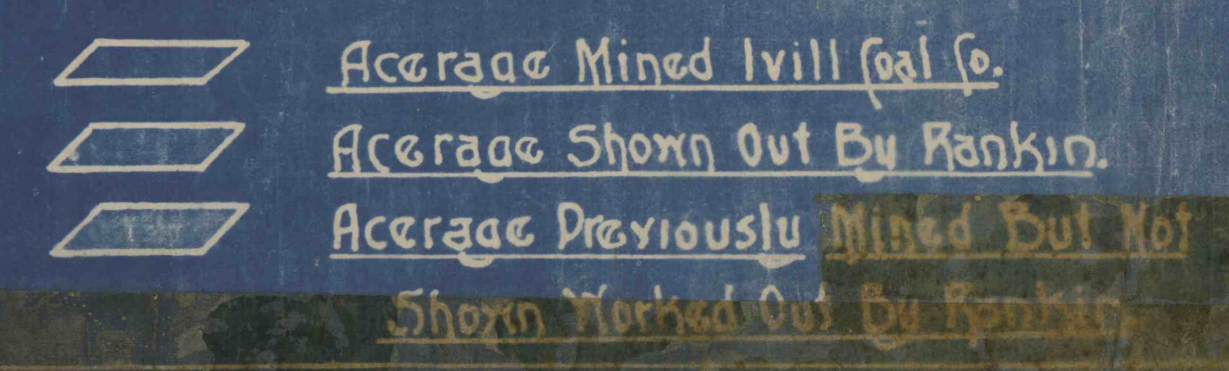 Acerage Mined Ivill Coal Co.
Acerage Shown Out By Rankin.
Acerage Previously Mined But Not
Shown Worked Out By Rankin.